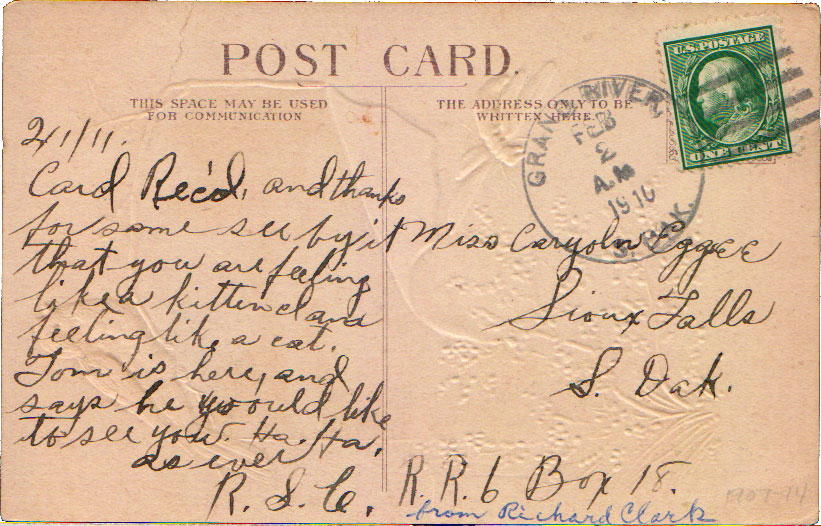 POST CARD.
THIS SPACE MAY BE USED
FOR COMMUNICATION
THE ADDRESS ONLY TO BE
WRITTEN HERE.
U.S. POSTAGE
ONE CENT
GRAND RIVER,
FEB
2
A.M
1910
S. DAK.
2/1/11.
Card Rec'd, and thanks
for same see by it
that you are feeling
like a kitten and
feeling like a cat.
Tom is here, and
says he would like
to see you. Ha. Ha.
as ever
R. S. C.
Miss Caryoln Eggee
Sioux Falls
S. Dak.
R. R. 6 Box 18.
from Richard Clark